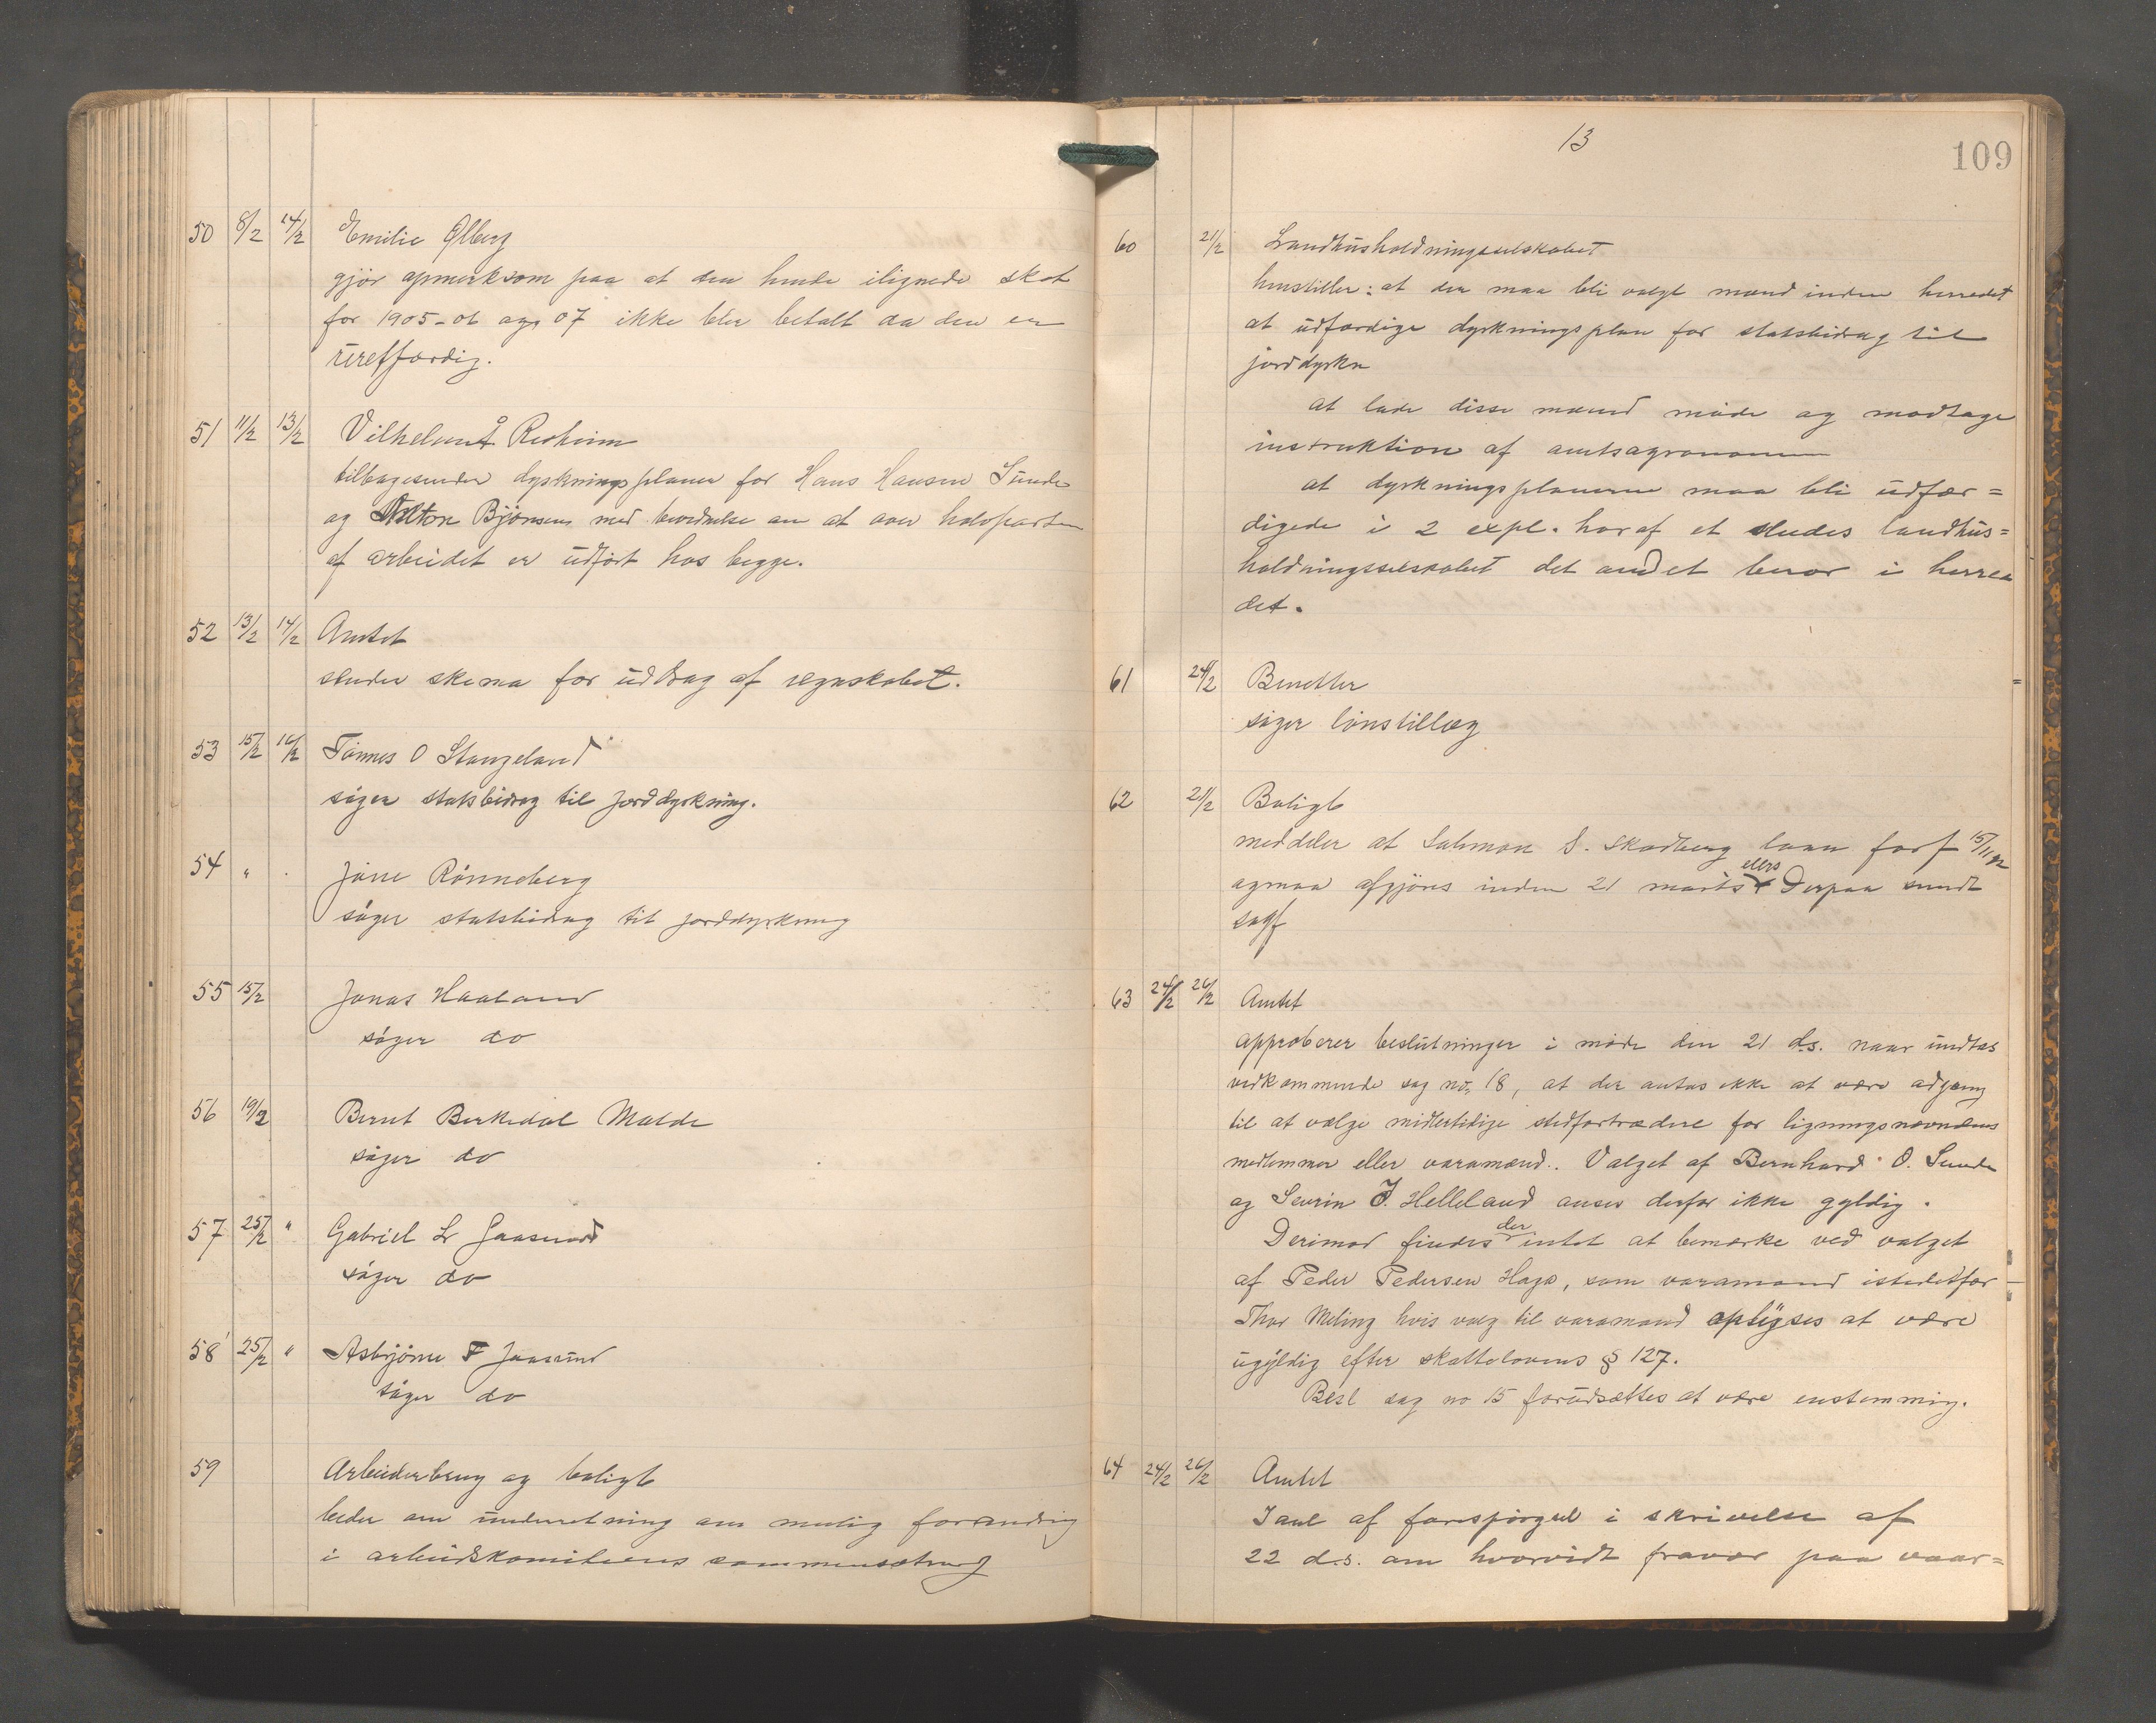 50 8/2 14/2 Emilie Ølberg
gjör opmerksom paa at den hende ilignede skat
for 1905-06 og 07 ikke blir betalt da den er
uretfærdig.
51 11/2 13/2 Vilhelm Å Risheim
tilbagesender dyrkningsplaner for Hans Hansen Sunde
og Anton Björnsen med bevidnelse om at over halvparten
af arbeidet er udfört hos begge.
52 13/2 14/2 Amtet
sender skema for uddrag af regnskabet.
53 15/2 16/2 Tönnes O Stangeland
söger statsbidrag til jorddyrkning.
54 " " Jone Rönneberg
söger statsbidrag til jorddyrkning
55 15/2 Jonas Haaland
söger do
56 19/2 Bernt Berkedal Malde
söger do
57 25/2 " Gabriel Lr Jaasund
söger do
58 25/2 " Asbjörn F Jaasund
söger do
59 Arbeiderbrug og boligb
beder om underretning om mulig forandrig
i arbeidskomiteens sammensætning
13
109
60 21/2 Landhusholdningsselskabet
henstiller: at der maa bli valgt mænd inden herredet
at udfærdige dyrkningsplan for statsbidrag til
jorddyrkn
at lade disse mænd möde og modtage
instruktion af amtsagronomen
at dyrkningsplanerne maa bli udfær=
digede i 2 expl. hvoraf et sendes landhus=
holdningsselskabet det andet beror i herre
det.
61 24/2 Benetter
söger lönstillæg
62 21/2 Boligb
meddeler at Salmon S. Skadberg laan forf 15/11 92
ogmaa afgjöres inden 21 marts ellers Derpaa sendt
sagf
63 24/2 26/2 Amtet
approberer beslutninger i möde den 21 d.s. naar undtas
vedkommende sag no, 18, at der antas ikke at være adgang
til at vælge midlertidige stedfortrædere for ligningsnævndens
medlemmer eller varamænd. Valget af Bernhard O. Sunde
og Sevrin J. Helleland anses derfor ikke gyldig.
Derimod findes der intet at bemærke ved valget
af Peder Pedersen Haga, som varamand istedetfor
Thor Meling hvis valg til varamand oplyses at være
ugyldig efter skattelovens § 127.
Besl sag no 15 forudsættes at være enstemmig.
64 24/2 26/2 Amtet
I anl af forespörgsel i skrivelse af
22 d.s. om hvorvidt fravær paa vaar=